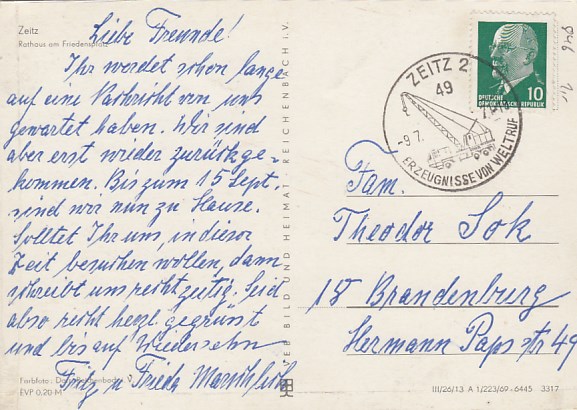 Zeitz
Rathaus am Friedensplatz
Liebe Freunde!
Ihr werdet schon lange
auf eine Nachricht von uns
gewartet haben. Wir sind
aber erst wieder zurückge-
kommen. Bis zum 15 Sept.
sind wir nun zu Hause.
Solltet Ihr uns, in dieser
Zeit besuchen wollen, dann
schreibt uns rechtzeitig. Seid
also recht herzl. gegrüsst
und bis auf Wiedersehn
Fritz u Frieda
Farbfoto:
EVP 0,20 M
VEB BILD UND HEIMAT · REICHENBACH i. V.
ZEITZ 2
49
-9.7.
ERZEUGNISSE VON WELTRUF
10
DEUTSCHE
DEMOKRATISCHE REPUBLIK
Fam.
Theodor Sok
18 Brandenburg
Hermann Paps str 49
III/26/13 A 1/223/69-6445 3317